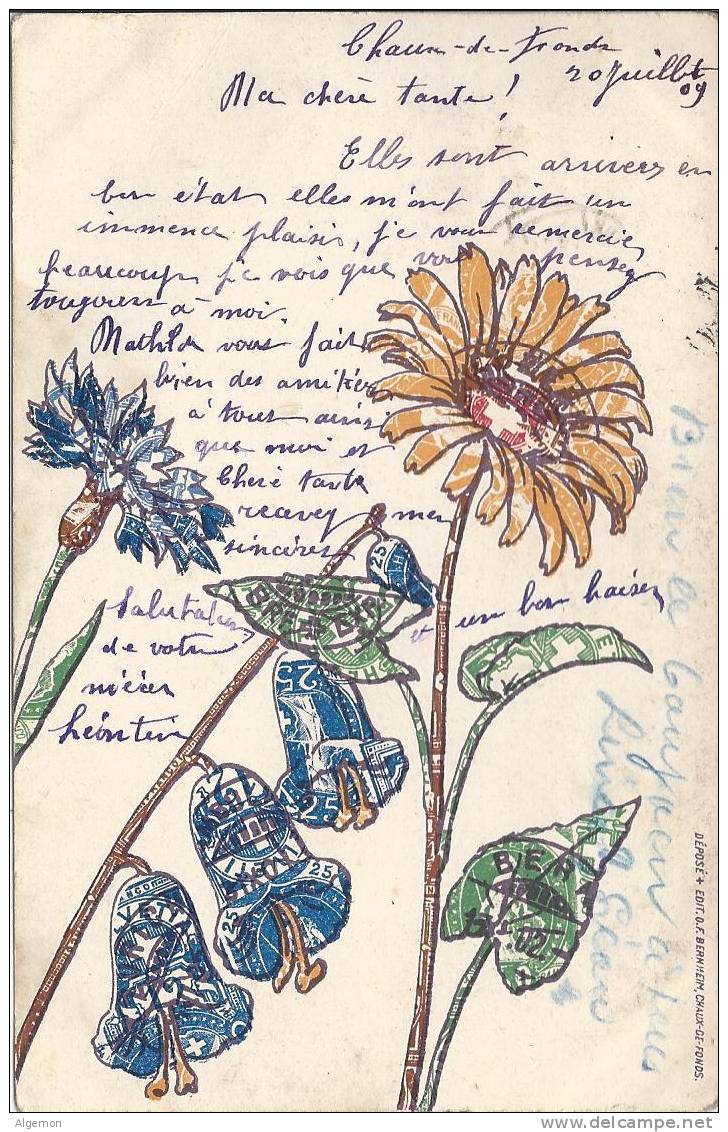 Chaux-de-Fonds
20 Juillet
09
Ma chère tante !
Elles sont arrivées en
bon état elles m'ont fait un
immence plaisir, je vous remercie
beaucoup je vois que vous pensez
toujours à moi.
Mathilde vous fait
bien des amitiés
à tous ainsi
que moi et
Chère tante
recevez mes
sincères
Salutations
et un bon baiser
de votre
nièce
Léontine
Bien le bonjour à tous
DÉPOSÉ + EDIT. O.F. BERNHEIM, CHAUX-DE-FONDS.
25
25
25
25
25
BERN
.02.
Algemon
www.delcampe.net